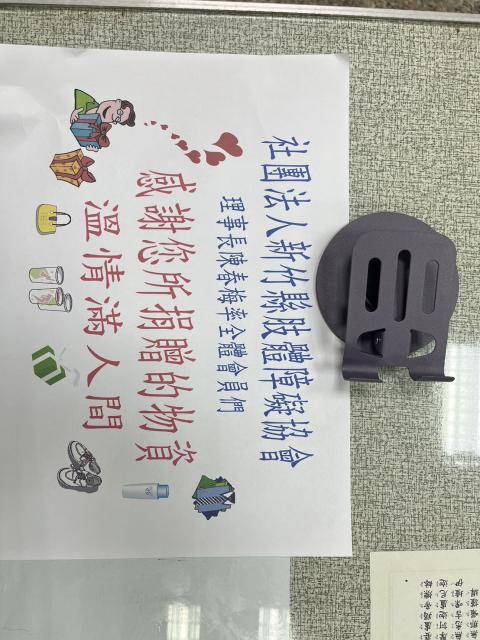 社團法人新竹縣肢體障礙協會
理事長陳春梅率全體會員們
感謝您所捐贈的物資
溫情滿人間